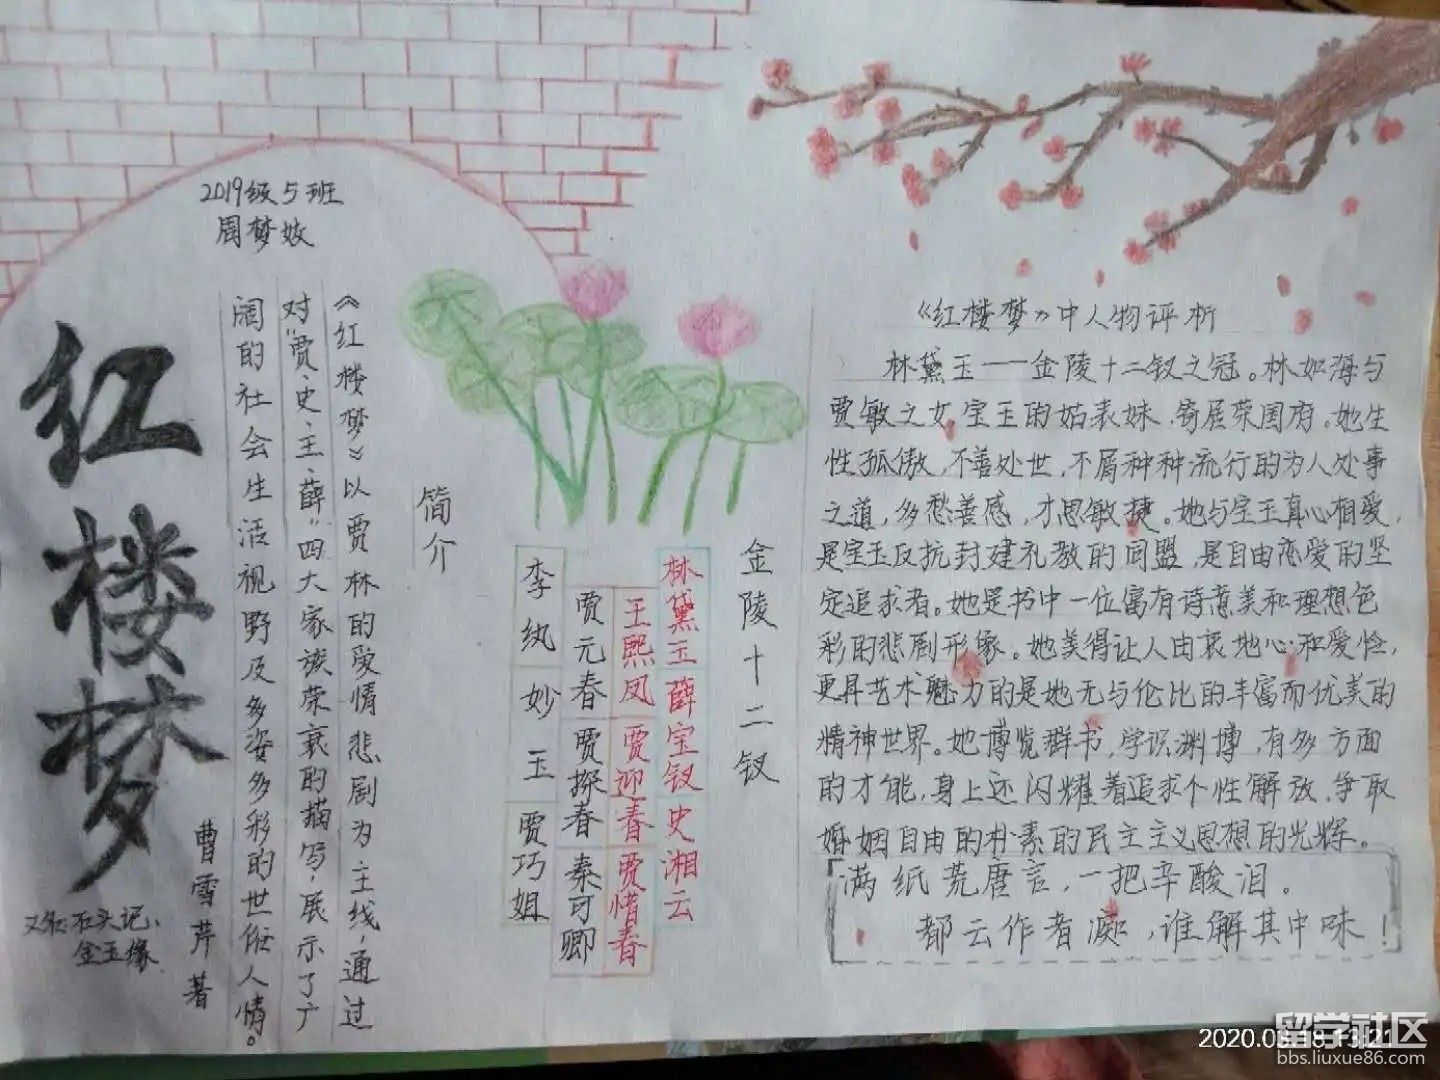 2019级5班
周梦姣
红楼梦
又名:石头记、
金玉缘
曹雪芹著
简介
《红楼梦》以贾林的爱情悲剧为主线,通过
对“贾、史、王、薛”四大家族荣衰的描写,展示了广
阔的社会生活视野及多姿多彩的世俗人情。
金陵十二钗
林黛玉 薛宝钗 史湘云
王熙凤 贾迎春 贾惜春
贾元春 贾探春 秦可卿
李纨 妙玉 贾巧姐
《红楼梦》中人物评析
林黛玉——金陵十二钗之冠。林如海与
贾敏之女,宝玉的姑表妹,寄居荣国府。她生
性孤傲,不善处世,不屑种种流行的为人处事
之道,多愁善感,才思敏捷。她与宝玉真心相爱,
是宝玉反抗封建礼教的同盟,是自由恋爱的坚
定追求者。她是书中一位富有诗意美和理想色
彩的悲剧形象。她美得让人由衷地心和爱怜,
更具艺术魅力的是她无与伦比的丰富而优美的
精神世界。她博览群书,学识渊博,有多方面
的才能,身上还闪耀着追求个性解放、争取
婚姻自由的朴素的民主主义思想的光辉。
满纸荒唐言,一把辛酸泪。
都云作者痴,谁解其中味!
2020.03.18 13:21
留学社区
bbs.liuxue86.com